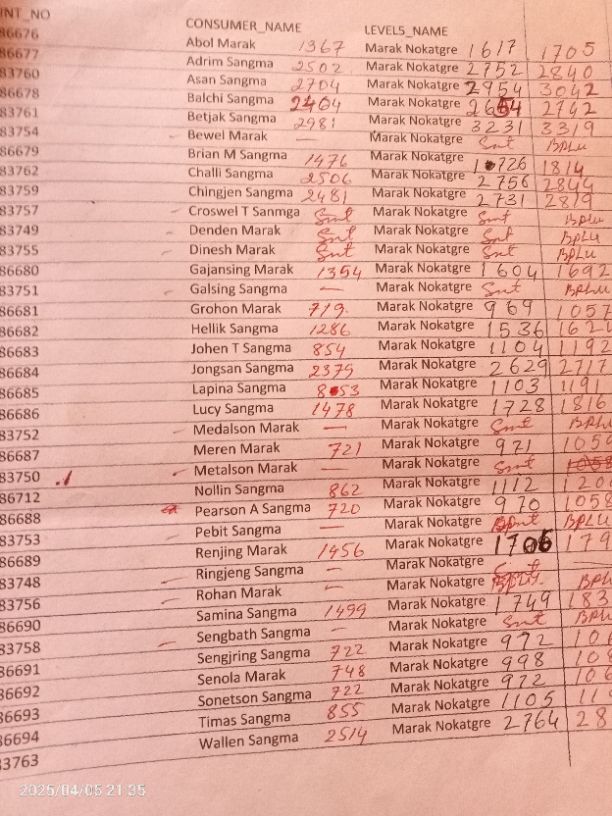 INT_NO CONSUMER_NAME LEVEL5_NAME
86676 Abol Marak 1367 Marak Nokatgre 1617 1705
86677 Adrim Sangma 2502 Marak Nokatgre 2752 2840
83760 Asan Sangma 2704 Marak Nokatgre 2954 3042
86678 Balchi Sangma 2404 Marak Nokatgre 2654 2742
83761 Betjak Sangma 2981 Marak Nokatgre 3231 3319
83754 – Bewel Marak — Marak Nokatgre Smt BPLu
86679 Brian M Sangma 1476 Marak Nokatgre 1726 1814
83762 Challi Sangma 2506 Marak Nokatgre 2756 2844
83759 Chingjen Sangma 2481 Marak Nokatgre 2731 2819
83757 – Croswel T Sanmga Smt Marak Nokatgre Smt BPLu
83749 – Denden Marak Smt Marak Nokatgre Smt BPLu
83755 – Dinesh Marak Smt Marak Nokatgre Smt BPLu
86680 Gajansing Marak 1354 Marak Nokatgre 1604 1692
83751 – Galsing Sangma — Marak Nokatgre Smt BPLu
86681 Grohon Marak 719. Marak Nokatgre 969 1057
86682 Hellik Sangma 1286 Marak Nokatgre 1536 162
86683 Johen T Sangma 854 Marak Nokatgre 1104 1192
86684 Jongsan Sangma 2379 Marak Nokatgre 2629 2717
86685 Lapina Sangma 853 Marak Nokatgre 1103 1191
86686 Lucy Sangma 1478 Marak Nokatgre 1728 1816
83752 – Medalson Marak — Marak Nokatgre Smt BPLu
86687 Meren Marak 721 Marak Nokatgre 971 105
83750 – Metalson Marak — Marak Nokatgre Smt 1058
86712 Nollin Sangma 862 Marak Nokatgre 1112 120
86688 Pearson A Sangma 720 Marak Nokatgre 970 105
83753 – Pebit Sangma — Marak Nokatgre BPLu
86689 Renjing Marak 1456 Marak Nokatgre 1706 179
83748 – Ringjeng Sangma — Marak Nokatgre
83756 – Rohan Marak — Marak Nokatgre BPL
86690 Samina Sangma 1499 Marak Nokatgre 1749 183
83758 – Sengbath Sangma — Marak Nokatgre Smt BPLu
86691 Sengjring Sangma 722 Marak Nokatgre 972 10
86692 Senola Marak 748 Marak Nokatgre 998 10
86693 Sonetson Sangma 722 Marak Nokatgre 972 106
86694 Timas Sangma 855 Marak Nokatgre 1105 11
83763 Wallen Sangma 2514 Marak Nokatgre 2764 28
2025/04/05 21:35